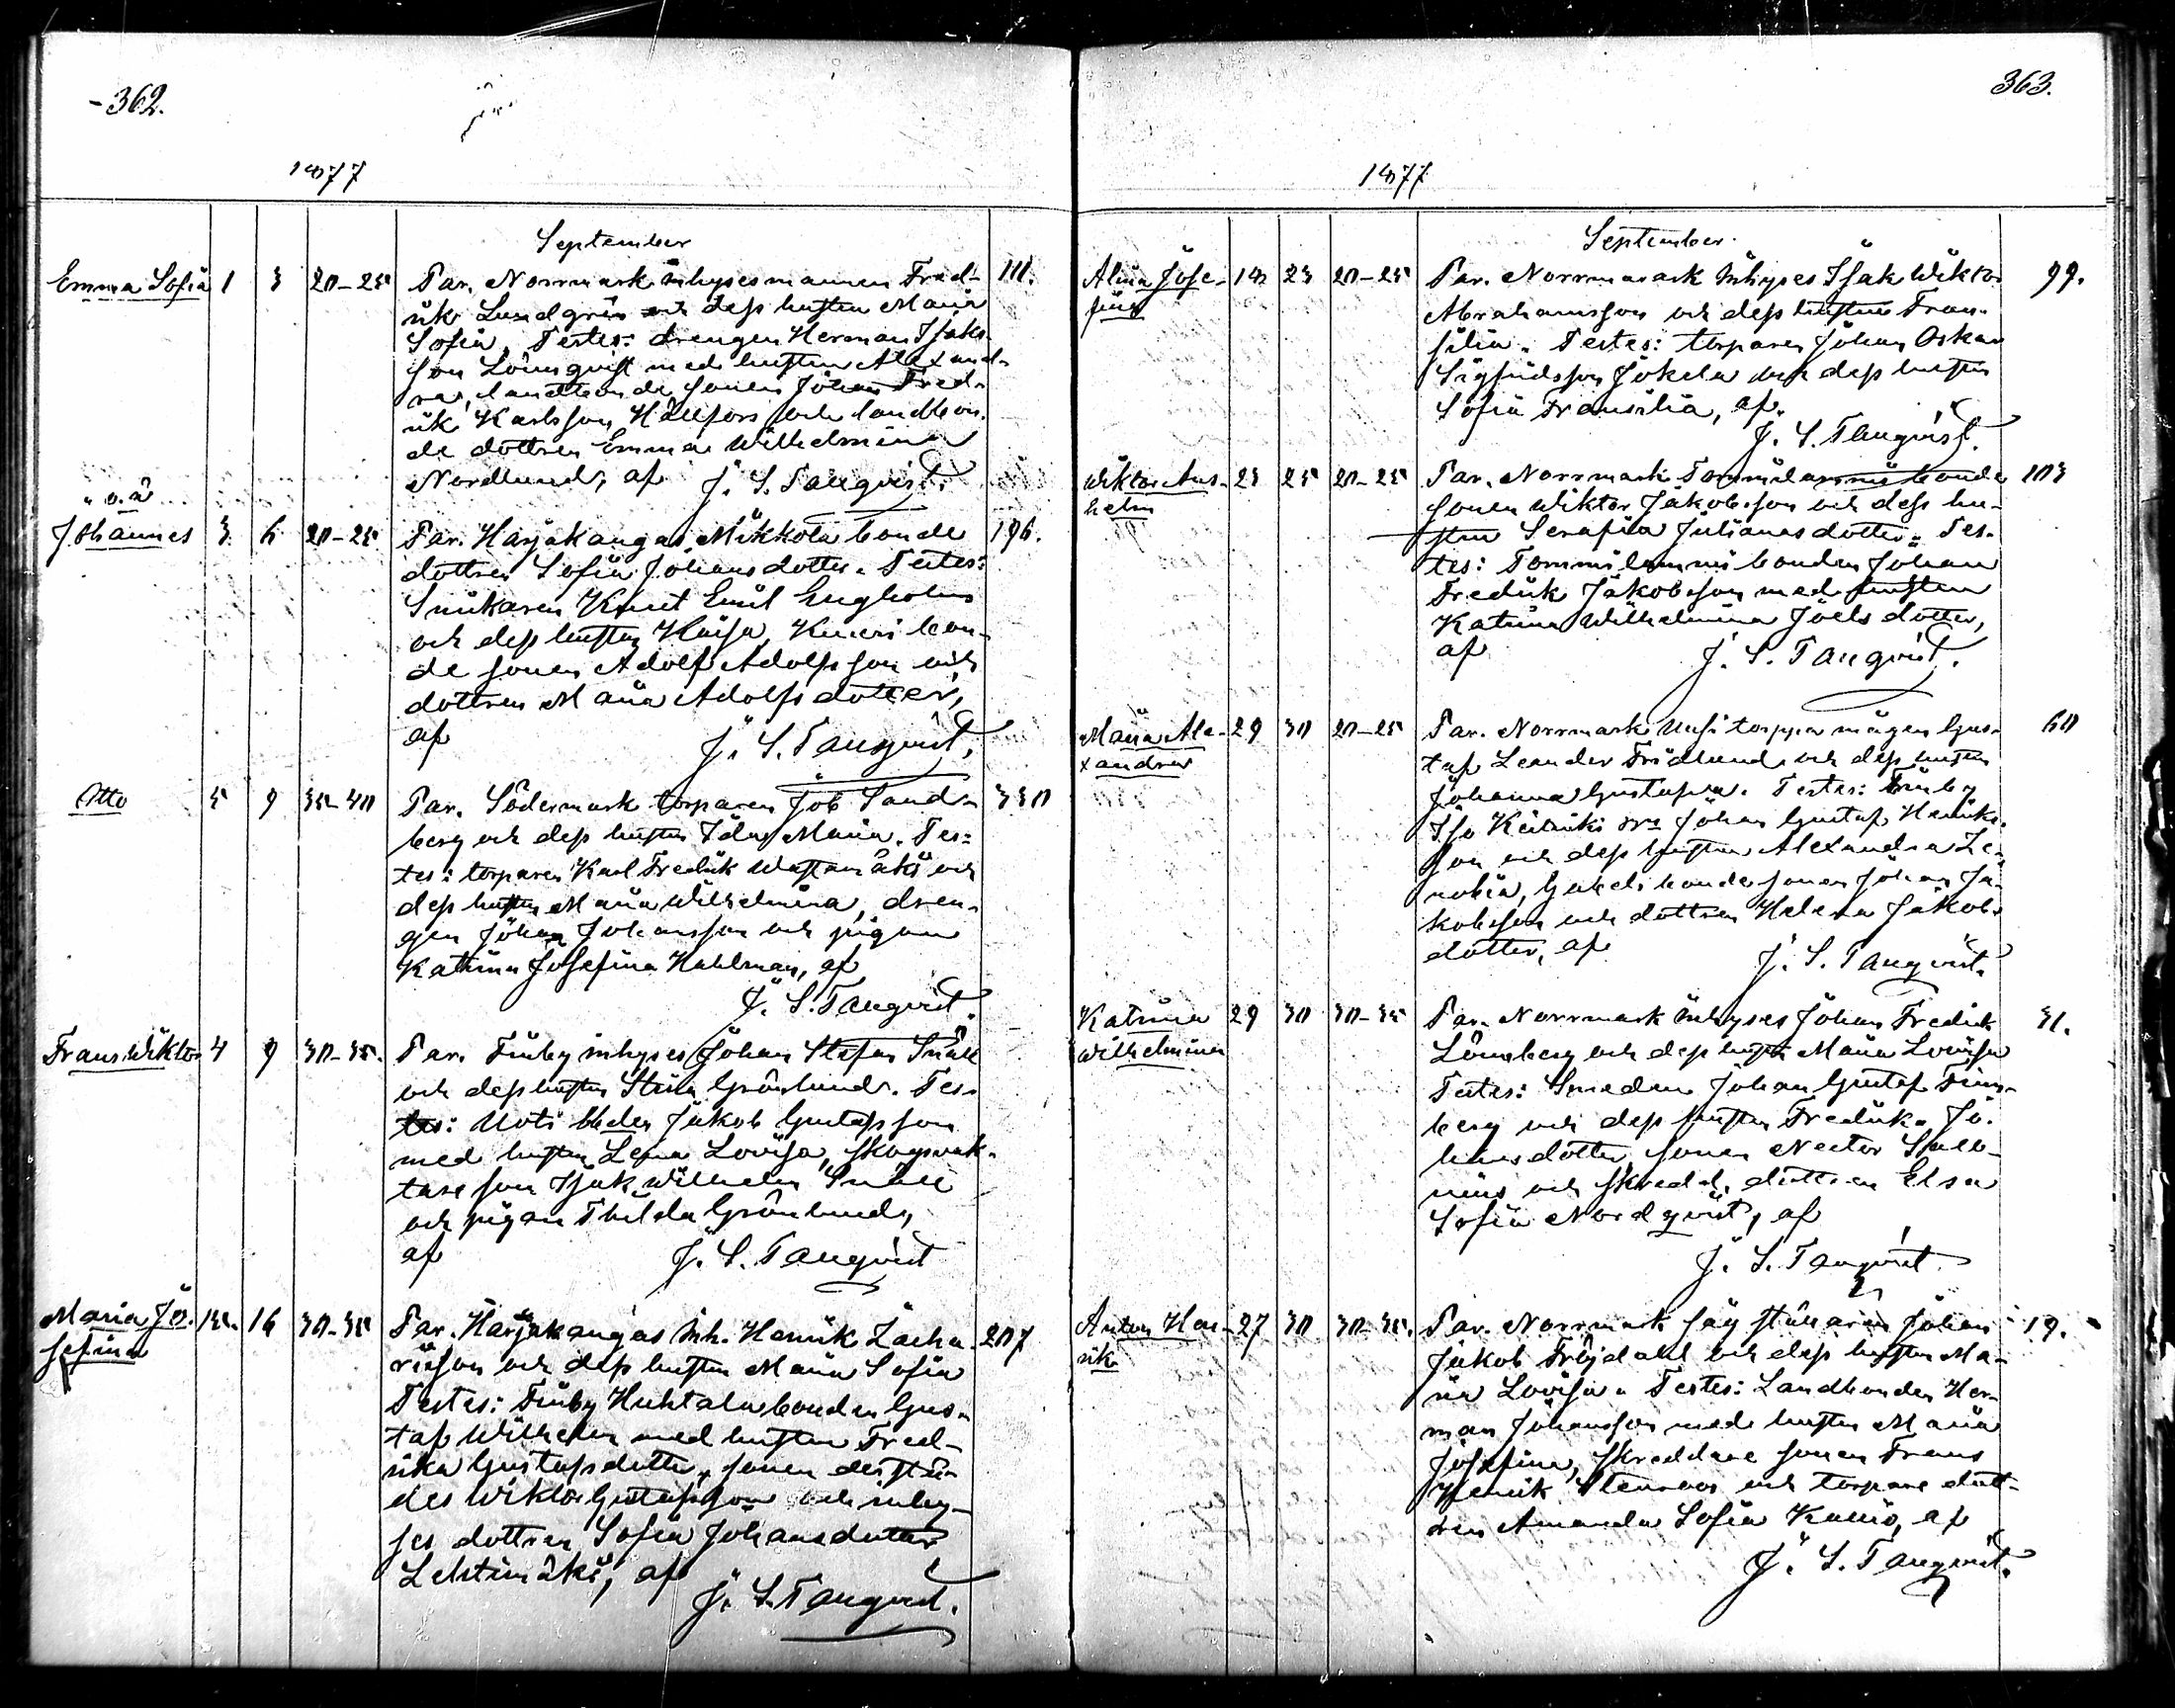 362.
1877
September
Emma Sofia 1 3 20-25 Par. Norrmark Inhysesmannen Fred- 111.
rik Lundgrén och dess hustru Maria
Sofia, Testes: drengen Herman Isaks-
son Lönnqvist med hustru Alexand-
ra, landbonde sonen Johan Fred-
rik Karlsson Hällfors och landbon-
de dottren Emma Wilhelmina
Nordlund, af J. S. Tanqvist.
o.ä
Johannes 3 6 20-25 Par. Harjakangas Mikkola bonde 196.
dottren Sofia Johansdotter. Testes:
Snikaren Knut Emil Engholm
och dess hustru Kaisa, bon-
de sonen Adolf Adolfsson och
dottren Maria Adolfsdotter,
af J. S. Tanqvist.
Otto 5 9 35-40 Par. Södermark torparen Job Sand- 330
berg och dess hustru Ida Maria. Tes-
tes: torparen Karl Fredrik Wastamäki och
dess hustru Maria Wilhelmina, dren-
gen Johan Johansson och pigan
Katrina Josefina Hahlman, af
J. S. Tanqvist.
Frans Wiktor 4 9 30-35. Par. Finby inhyses Johan Stefan Snäll
och dess hustru Stina Grönlund. Tes-
tes: Uoti bden Jakob Gustafsson
med hustru Lena Lovisa, skogvak-
tare son Isak Wilhelm Snäll
och pigan Thilda Grönlund,
af J. S. Tanqvist
Maria Jo- 15. 16 30-35 Par. Harjakangas Inh. Henrik Zacha- 207
sefina riasson och dess hustru Maria Sofia
Testes: Finby Huhtala bonden Gus-
taf Wilhelm med hustru Fred-
rika Gustafsdotter, sonen derstä-
des Wiktor Gustafsson och inhy-
ses dottren Sofia Johansdotter
Lehtimäki, af
J. S. Tanqvist.
363.
1877
September
Alina Jose- 18 23 20-25 Par. Norrmark Inhyses Isak Wiktor 99.
fina Abrahamsson och dess hustru Fran-
silia. Testes: torparen Johan Oskar
Sigfridsson Jokela och dess hustru
Sofia Fransilia, af
J. S. Tanqvist.
Wiktor Ans- 23 25 20-25 Par. Norrmark Tommila bonde 103
helm sonen Wiktor Jakobsson och dess hu-
stru Serafia Julianasdotter. Tes-
tes: Tommila bonden Johan
Fredrik Jakobsson med hustru
Katrina Wilhelmina Joelsdotter,
af J. S. Tanqvist.
Maria Ale- 29 30 20-25 Par. Norrmark Uusi torppa mågen Gus- 60
xandra taf Leander Fridlund och dess hustru
Johanna Gustafva. Testes: Finby
Iso Johan Gustaf Henriks-
son och dess hustru Alexandra Ze-
nobia, bonde sonen Johan Ja-
kobsson och dottren Helena Jakobs-
dotter, af J. S. Tanqvist.
Katrina 29 30 30-35 Par. Norrmark Inhyses Johan Fredrik 31.
Wilhelmina Lönnberg och dess hustru Maria Lovisa
Testes: Smeden Johan Gustaf Finn-
berg och dess hustru Fredrika Jo-
hansdotter, sonen Nestor
och skredd. dottren Elsa
Sofia Nordqvist, af
J. S. Tanqvist.
Anton Hen- 27 30 30-35. Par. Norrmark såg ställaren Johan 19.
rik Jakob Fröjdahl och dess hustru Ma-
ria Lovisa. Testes: Landbonden Her-
man Johansson med hustru Maria
Josefina, Skreddare sonen Frans
Henrik Stenroos och torpare dott-
ren Amanda Sofia af
J. S. Tanqvist.